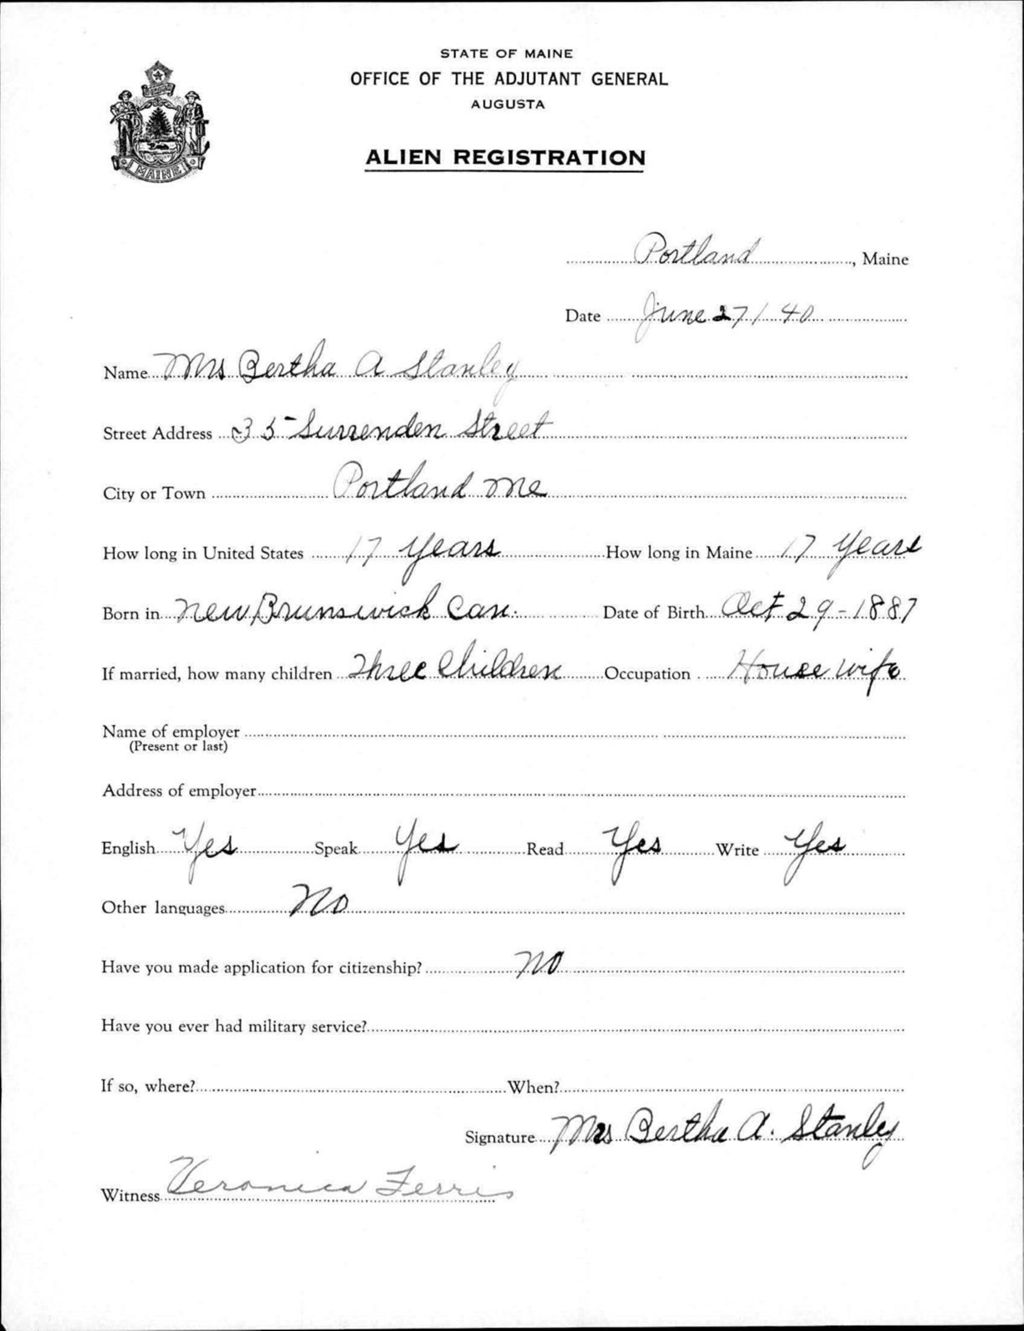 STATE OF MAINE
OFFICE OF THE ADJUTANT GENERAL
AUGUSTA
ALIEN REGISTRATION
MAINE
Portland, Maine
Date June 27/40
Name Mrs Bertha A Stanley
Street Address 35 Surrenden Street
City or Town Portland Me
How long in United States 17 years How long in Maine 17 years
Born in New Brunswick Can. Date of Birth Oct 29-1887
If married, how many children Three Children Occupation House wife
Name of employer
(Present or last)
Address of employer
English Yes Speak Yes Read Yes Write Yes
Other languages No
Have you made application for citizenship? No
Have you ever had military service?
If so, where? When?
Signature Mrs Bertha A. Stanley
Witness Veronica Ferris